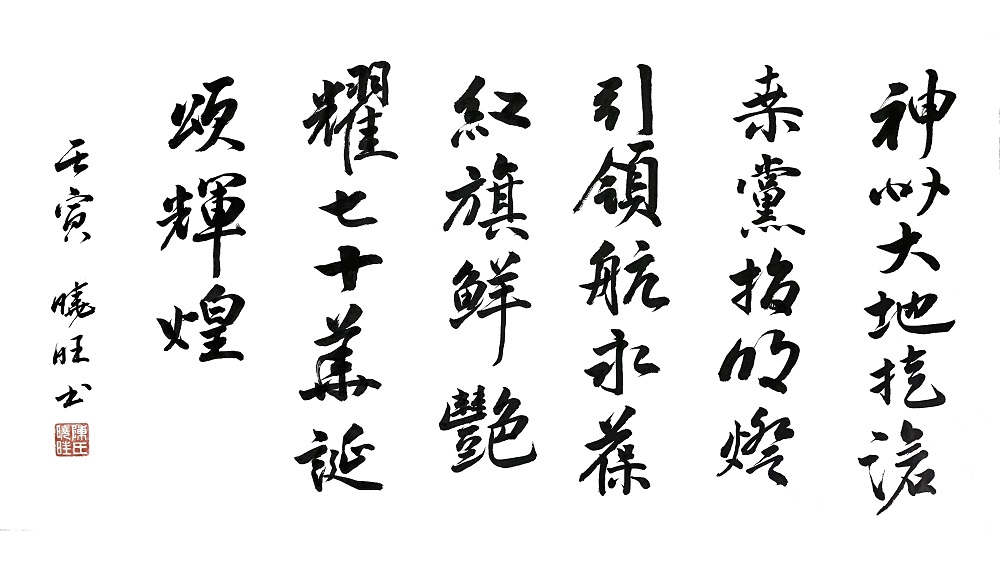 神州大地
桒黨指明燈
引領航永葆
紅旗鮮艷
耀七十華誕
頌輝煌
壬寅 曉旺书
陳氏曉旺